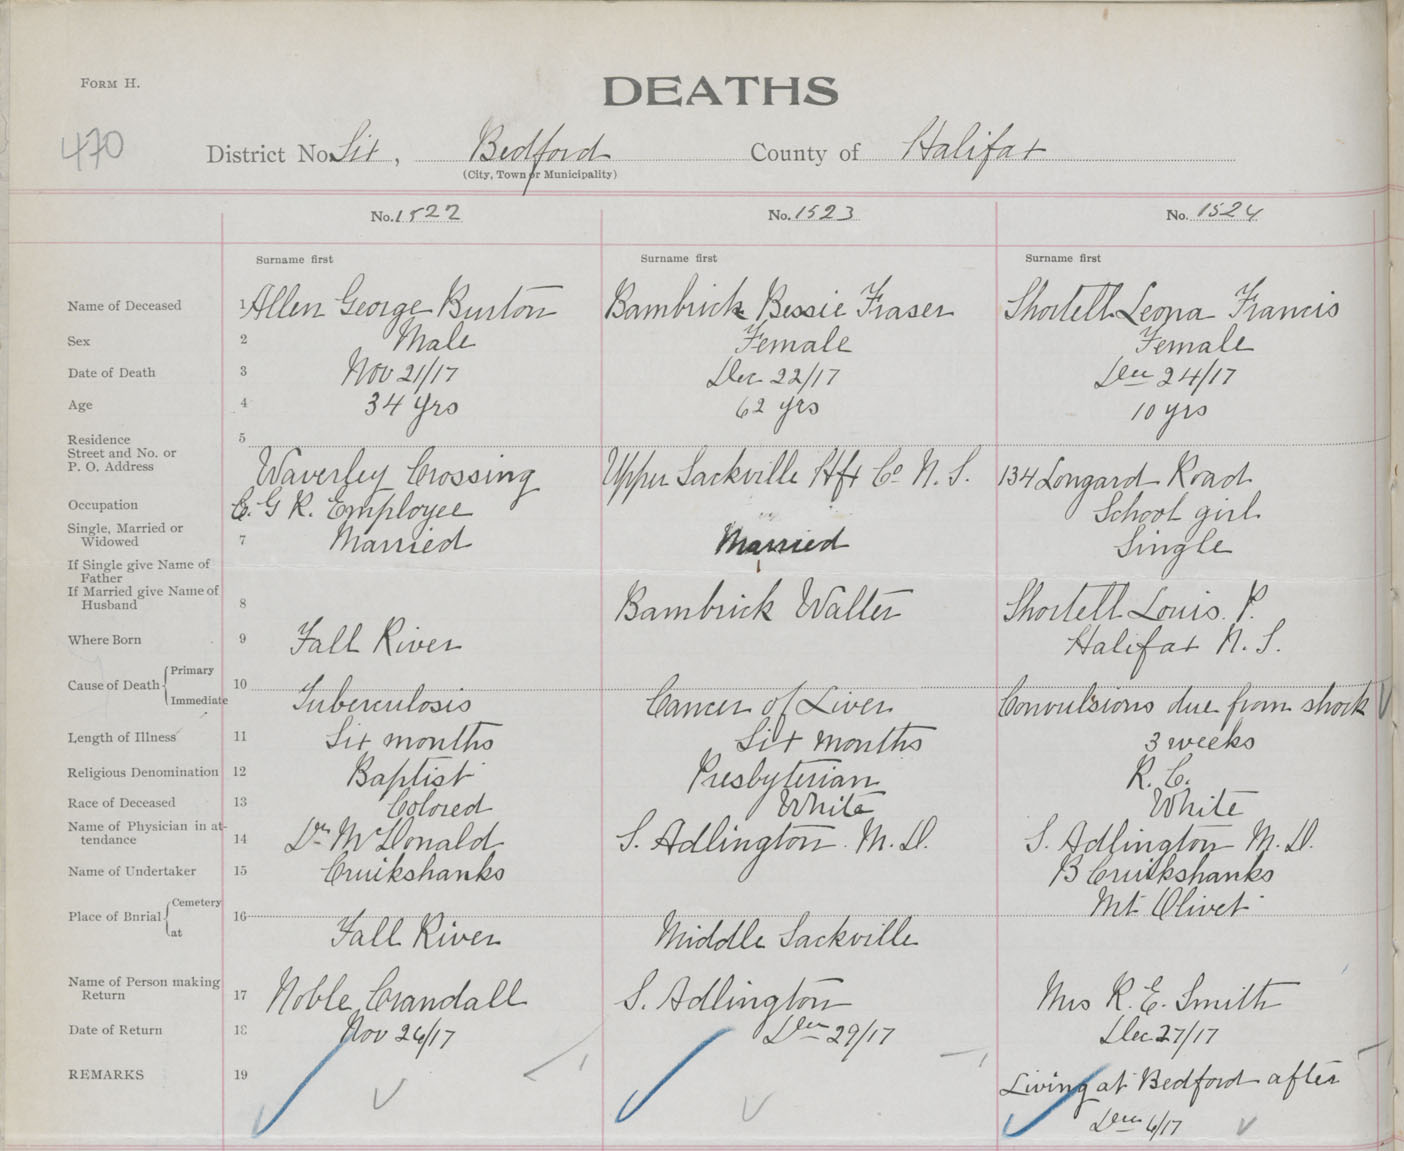 FORM H.
DEATHS
470
District No. Six, Bedford County of Halifax
(City, Town or Municipality)
No. 1522 No. 1523 No. 1524
Surname first Surname first Surname first
Name of Deceased 1 Allen George Burton Bambrick Bessie Fraser Shortell Leona Francis
Sex 2 Male Female Female
Date of Death 3 Nov 21/17 Dec 22/17 Dec 24/17
Age 4 34 yrs 62 yrs 10 yrs
Residence 5
Street and No. or
P. O. Address Waverley Crossing Upper Sackville Hfx Co N. S. 134 Longard Road
Occupation C. G R. Employee School girl
Single, Married or
Widowed 7 Married Married Single
If Single give Name of
Father
If Married give Name of
Husband 8 Bambrick Walter Shortell Louis. P.
Where Born 9 Fall River Halifax N. S.
Cause of Death { Primary 10
Immediate Tuberculosis Cancer of Liver Convulsions due from shock
Length of Illness 11 Six months Six months 3 weeks
Religious Denomination 12 Baptist Presbyterian R. C.
Race of Deceased 13 Colored White White
Name of Physician in at-
tendance 14 Dr McDonald S. Adlington. M. D. S. Adlington M. D.
Name of Undertaker 15 Cruikshanks B Cruikshanks
Place of Burial { Cemetery 16 Mt Olivet
at Fall River Middle Sackville
Name of Person making
Return 17 Noble Crandall S. Adlington Mrs R. E. Smith
Date of Return 18 Nov 26/17 Dec 29/17 Dec 27/17
REMARKS 19 Living at Bedford after
Dec 6/17